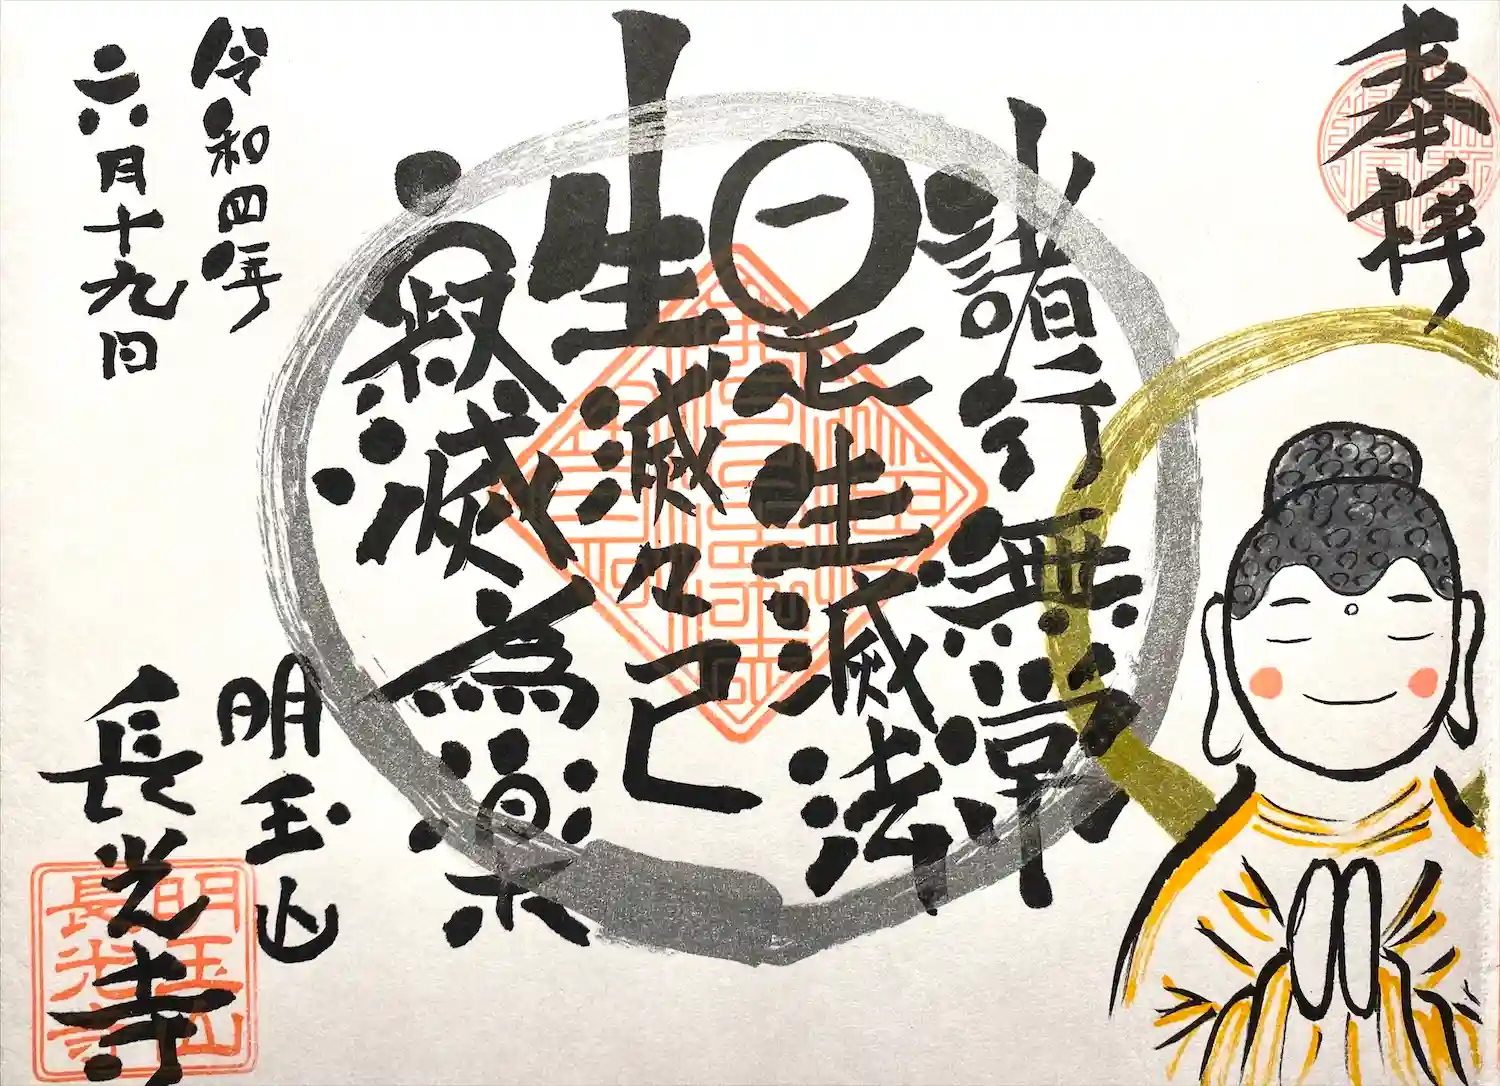 奉拝
諸行無常
是生滅法
生滅々己
寂滅為楽
令和四年
六月十九日
明玉山
長光寺
明玉山
長光寺